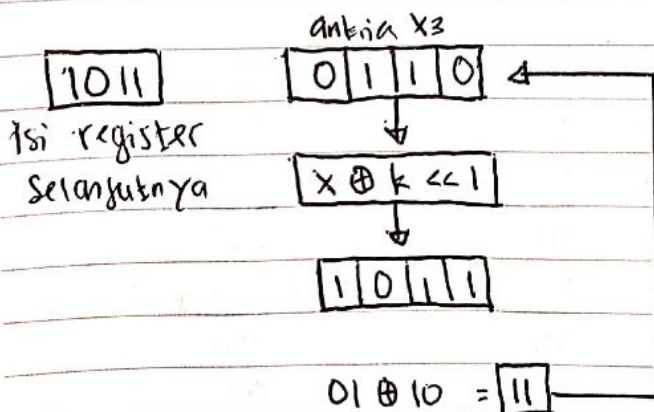 antria X3
1011
0 1 1 0
Isi register
Selanjutnya
X ⊕ k << 1
1 0 1 1
01 ⊕ 10 = 11